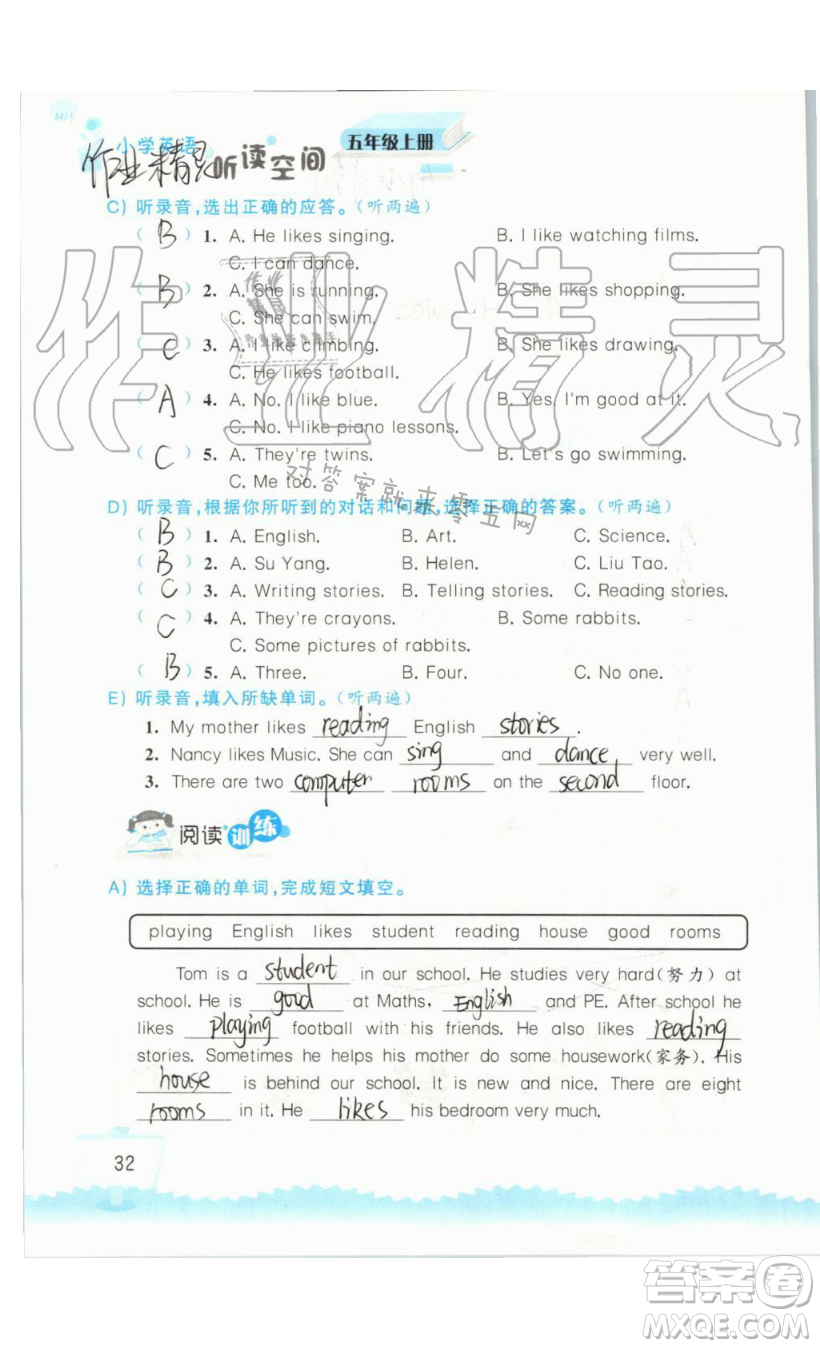 Hi!
小学英语
五年级上册
作业精灵 听读空间
C) 听录音,选出正确的应答。(听两遍)
( B ) 1. A. He likes singing. B. I like watching films.
C. I can dance.
( B ) 2. A. She is running. B. She likes shopping.
C. She can swim.
( C ) 3. A. I like climbing. B. She likes drawing.
C. He likes football.
( A ) 4. A. No. I like blue. B. Yes, I'm good at it.
C. No. I like piano lessons.
( C ) 5. A. They're twins. B. Let's go swimming.
C. Me too.
作业精灵
对答案就来零五网
D) 听录音,根据你所听到的对话和问题,选择正确的答案。(听两遍)
( B ) 1. A. English. B. Art. C. Science.
( B ) 2. A. Su Yang. B. Helen. C. Liu Tao.
( C ) 3. A. Writing stories. B. Telling stories. C. Reading stories.
( C ) 4. A. They're crayons. B. Some rabbits.
C. Some pictures of rabbits.
( B ) 5. A. Three. B. Four. C. No one.
E) 听录音,填入所缺单词。(听两遍)
1. My mother likes reading English stories.
2. Nancy likes Music. She can sing and dance very well.
3. There are two computer rooms on the second floor.
阅读训练
A) 选择正确的单词,完成短文填空。
playing English likes student reading house good rooms
Tom is a student in our school. He studies very hard(努力) at
school. He is good at Maths, English and PE. After school he
likes playing football with his friends. He also likes reading
stories. Sometimes he helps his mother do some housework(家务). His
house is behind our school. It is new and nice. There are eight
rooms in it. He likes his bedroom very much.
32
答案卷
MXQE.COM